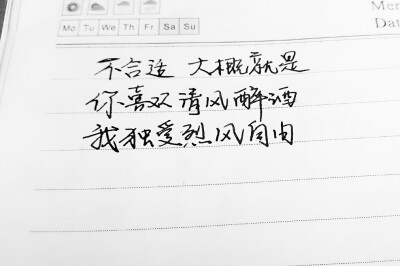 Mo Tu We Th Fr Sa Su
不合适 大概就是
你喜欢清风醉酒
我独爱烈风自由